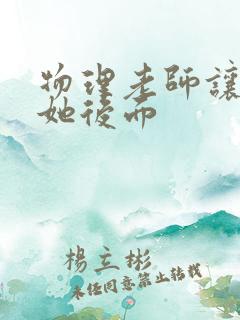 物理老師讓
她後而
楊立彬
未任同意禁止轉載